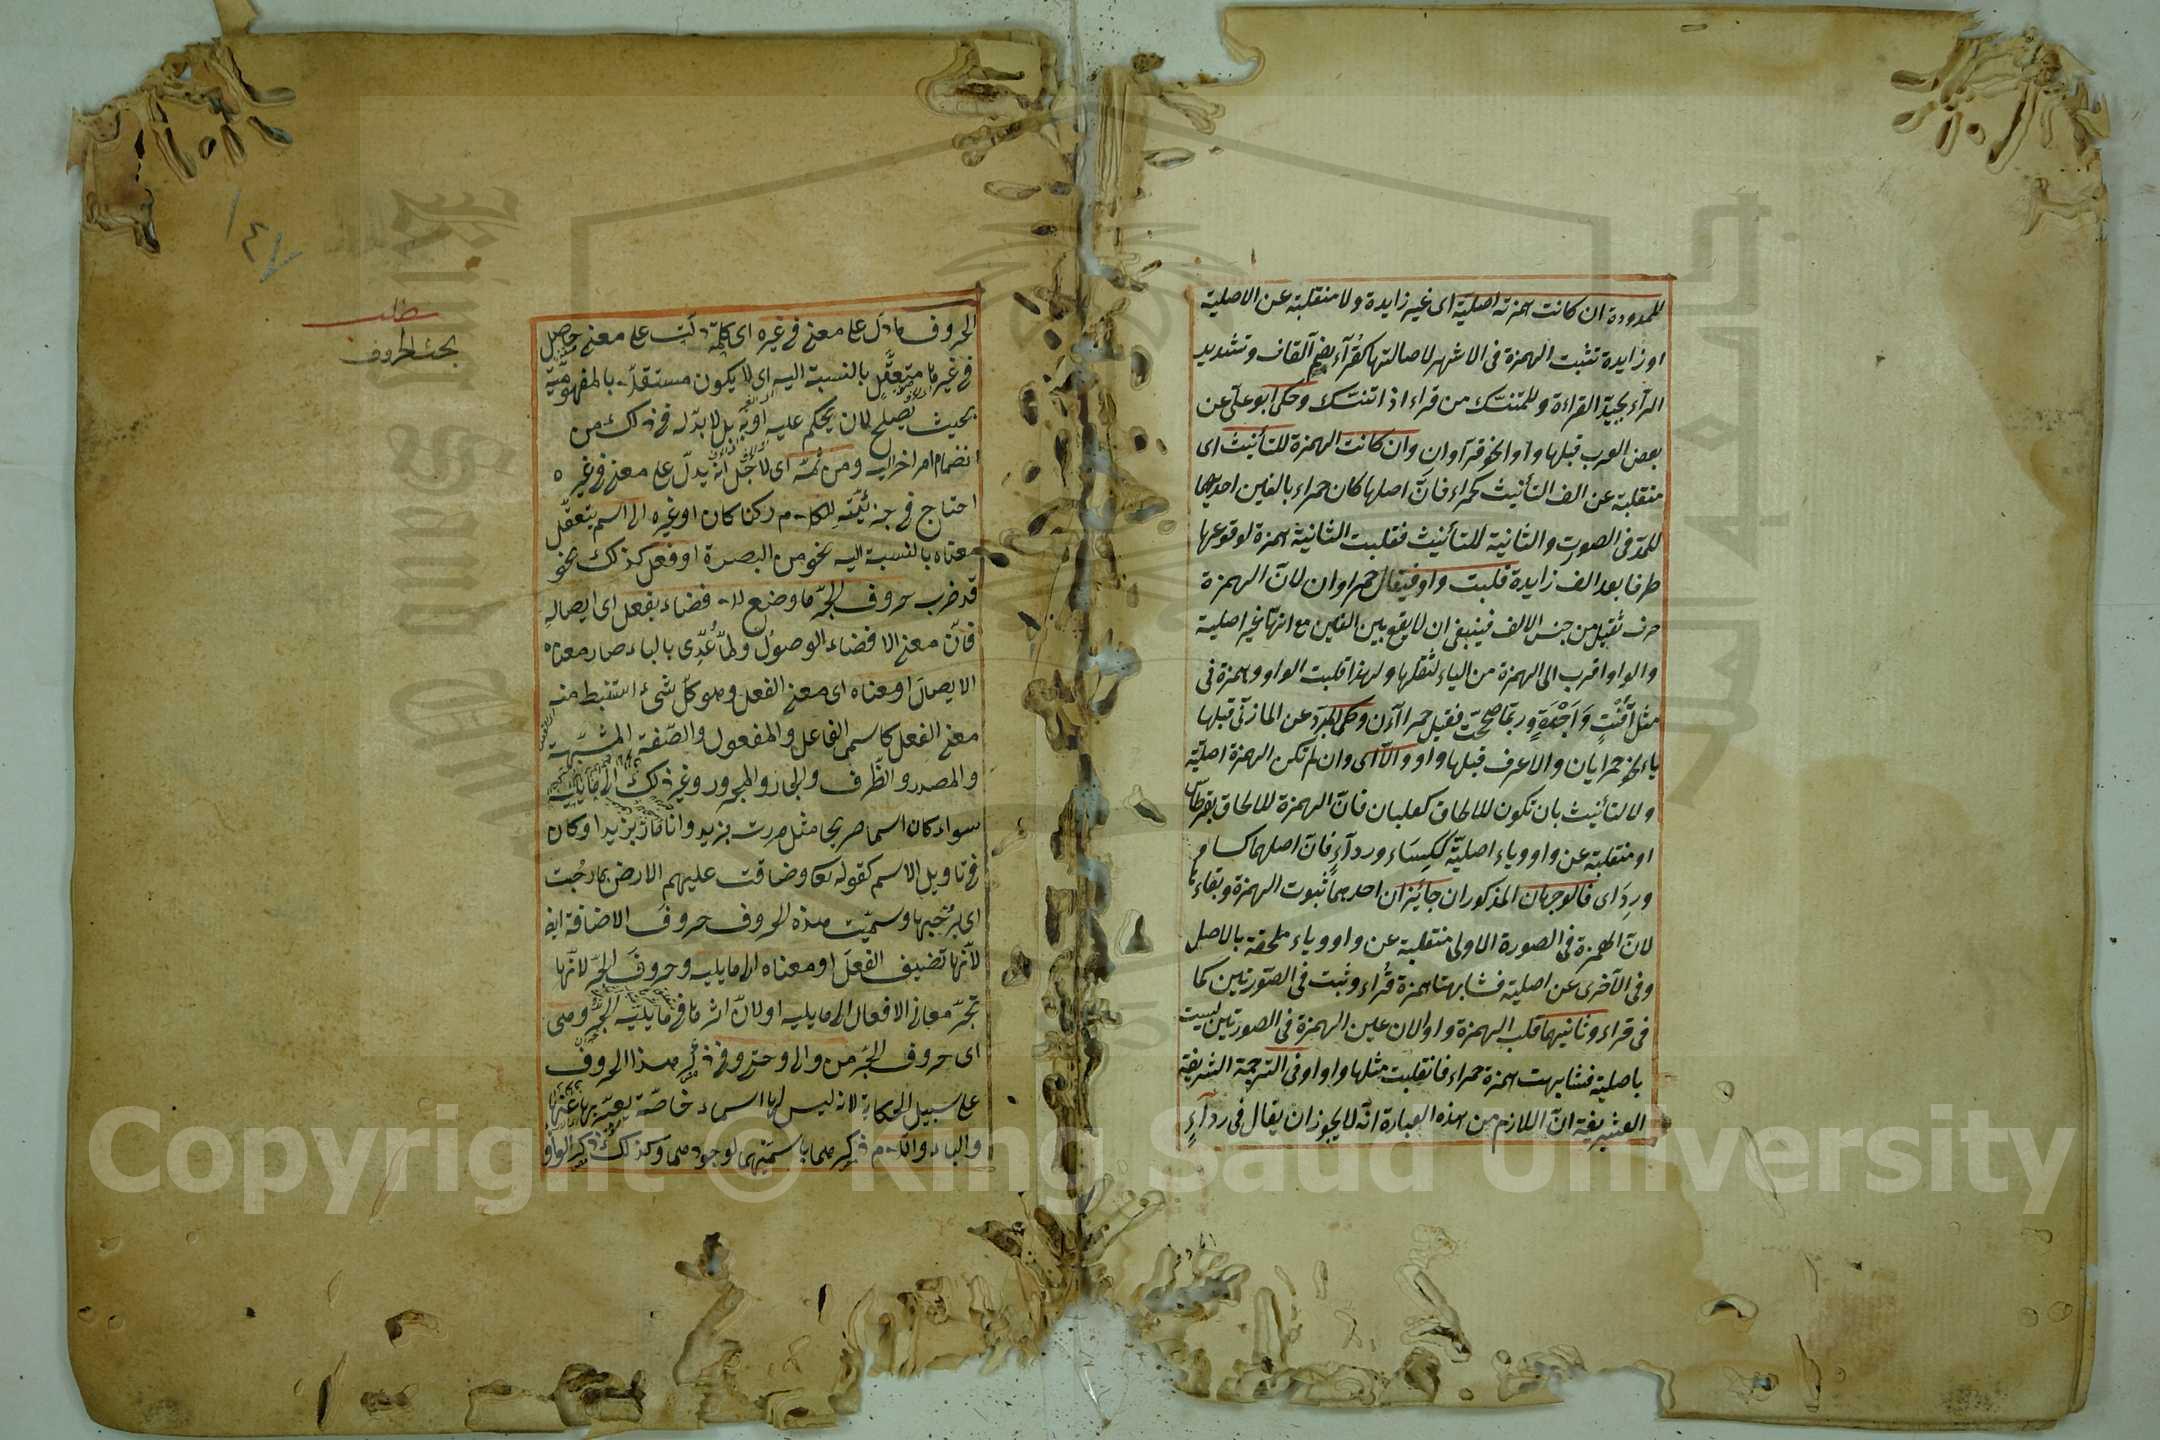 للممدودة ان كانت همزته اصلية اى غير زايدة ولا منقلبة عن الاصلية
او زايدة تثبت الهمزة فى الاشهر لاصالتها كقُرآء بضم القاف وتشديد
الرآء لجيد القراءة وللمتنسّك من قراء اذا تنسّك وحكى ابو على عن
بعض العرب قبلها واوا نحو قرّآوان وان كانت الهمزة للتأنيث اى
منقلبة عن الف التأنيث كحمراء فانّ اصلها كان حمراء بالفين احديهما
للمدّ فى الصوت والثانية للتأنيث فقلبت الثانية همزة لوقوعها
طرفا بعد الف زايدة قلبت واو فيقال حمراوان لانّ الهمزة
حرف ثقيل من جنس الالف فينبغى ان لا يقع بين الفين مع انّها غير اصلية
والواو اقرب الى الهمزة من الياء لثقلها ولهذا قلبت الواو وهمزة فى
مثل اُقّتت وَاَجْوَةٍ وربّما صحّت فقيل حمراآن وحكى المبرّد عن المازنى قبلها
ياء نحو حمرايان والاعرف قبلها واو والّا اى وان لم تكن الهمزة اصليّة
ولا لتأنيث بان تكون للالحاق كعلبان فانّ الهمزة للالحاق بقرطاس
او منقلبة عن واو وياء اصليّة ككِسَاء ورداءٍ فانّ اصلهما كساو
ورِدَاى فالوجهان المذكوران جائزان احدهما ثبوت الهمزة وبقاءها
لانّ الهمزة فى الصورة الاولى منقلبة عن واو وياء ملحقة بالاصل
وفى الآخرى عن اصلية فشابهتا همزة قُراء وثبت فى الصّورتين كما
فى قراء وثانيهما قلب الهمزة واوا لان عين الهمزة فى الصورتين ليست
باصلية فشابهت همزة حمراء فانقلبت مثلها واوا وفى الترجمة الشريفة
الشريفية انّ اللازم من هذه العبارة انّه لا يجوز ان يقال فى رداءٍ
١٤٧
مطلب
بحث الحروف
الحروف ما دلّ على معنى فى غيره اى كلمة دلّت على معنى حاصل
فى غيرها متعقّل بالنسبة اليه اى لا يكون مستقلّا بالمفهوميّة
بحيث يصلح لان يحكم عليه او به بل لا بدّ له فى ذلك من
انضمام امر اخر اليه ومن ثمّه اى لاجل انّه يدلّ على معنى فى غيره
احتاج فى جزئيّته للكلام ركنا كان او غيره الى اسم يتعقّل
معناه بالنسبة اليه نحو من البصرة او فعل كذلك نحو
قد ضرب حروف الجرّ ما وضع للافضاء بفعل اى ايصاله
فانّ معنى الافضاء الوصول ولمّا عُدّى بالباء صار معناه
الايصال او معناه اى معنى الفعل وهو كل شىء استنبط منه
معنى الفعل كاسمى الفاعل والمفعول والصّفة المشبّهة
والمصدر والظّرف والجار والمجرور وغير ذلك الى ما يليه
سواء كان اسما صريحا مثل مررت بزيد وانا مارّ بزيد او كان
فى تاويل الاسم كقوله تعا وضاقت عليهم الارض بما رحُبت
اى برُحْبها وسمّيت هذه الحروف حروف الاضافة ايض
لانّها تضيف الفعل او معناه الى ما يليه وحروف الجرّ لانّها
تجرّ معانى الافعال الى ما يليه او لانّ اثرها فى ما يليه الجرّ وهى
اى حروف الجرّ من والى وحتّى وفى ذكر هذا الحروف
على سبيل الحكاية لانه ليس لها اسماء خاصّة يعبّر بها عنها
والباء واللام ذكرهما باسميهما لوجودهما وكذلك ذكر الواو
Copyright © King Saud University